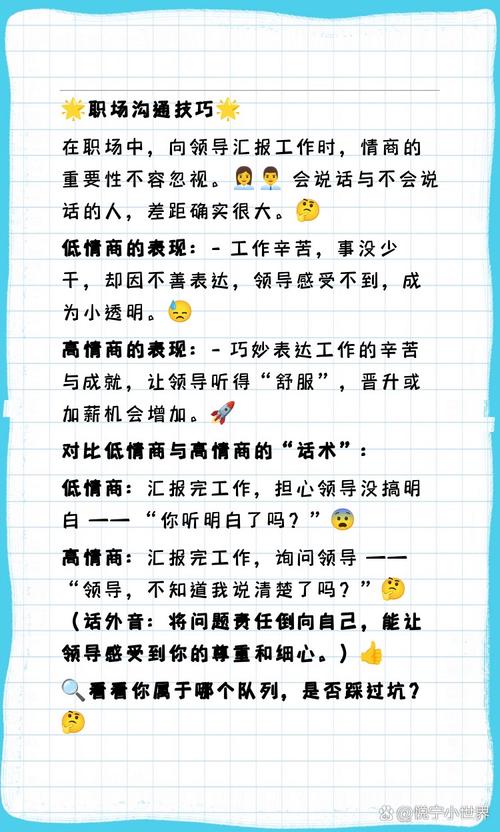 🌟职场沟通技巧🌟
在职场中，向领导汇报工作时，情商的
重要性不容忽视。👩‍💼👨‍💼 会说话与不会说
话的人，差距确实很大。🤔
低情商的表现：- 工作辛苦，事没少
干，却因不善表达，领导感受不到，成
为小透明。😓
高情商的表现：- 巧妙表达工作的辛苦
与成就，让领导听得“舒服”，晋升或
加薪机会增加。🚀
对比低情商与高情商的“话术”：
低情商：汇报完工作，担心领导没搞明
白 —— “你听明白了吗？”😨
高情商：汇报完工作，询问领导 ——
“领导，不知道我说清楚了吗？”🤔
（话外音：将问题责任倒向自己，能让
领导感受到你的尊重和细心。）👍
🔍看看你属于哪个队列，是否踩过坑？
🤔
@悦宁小世界